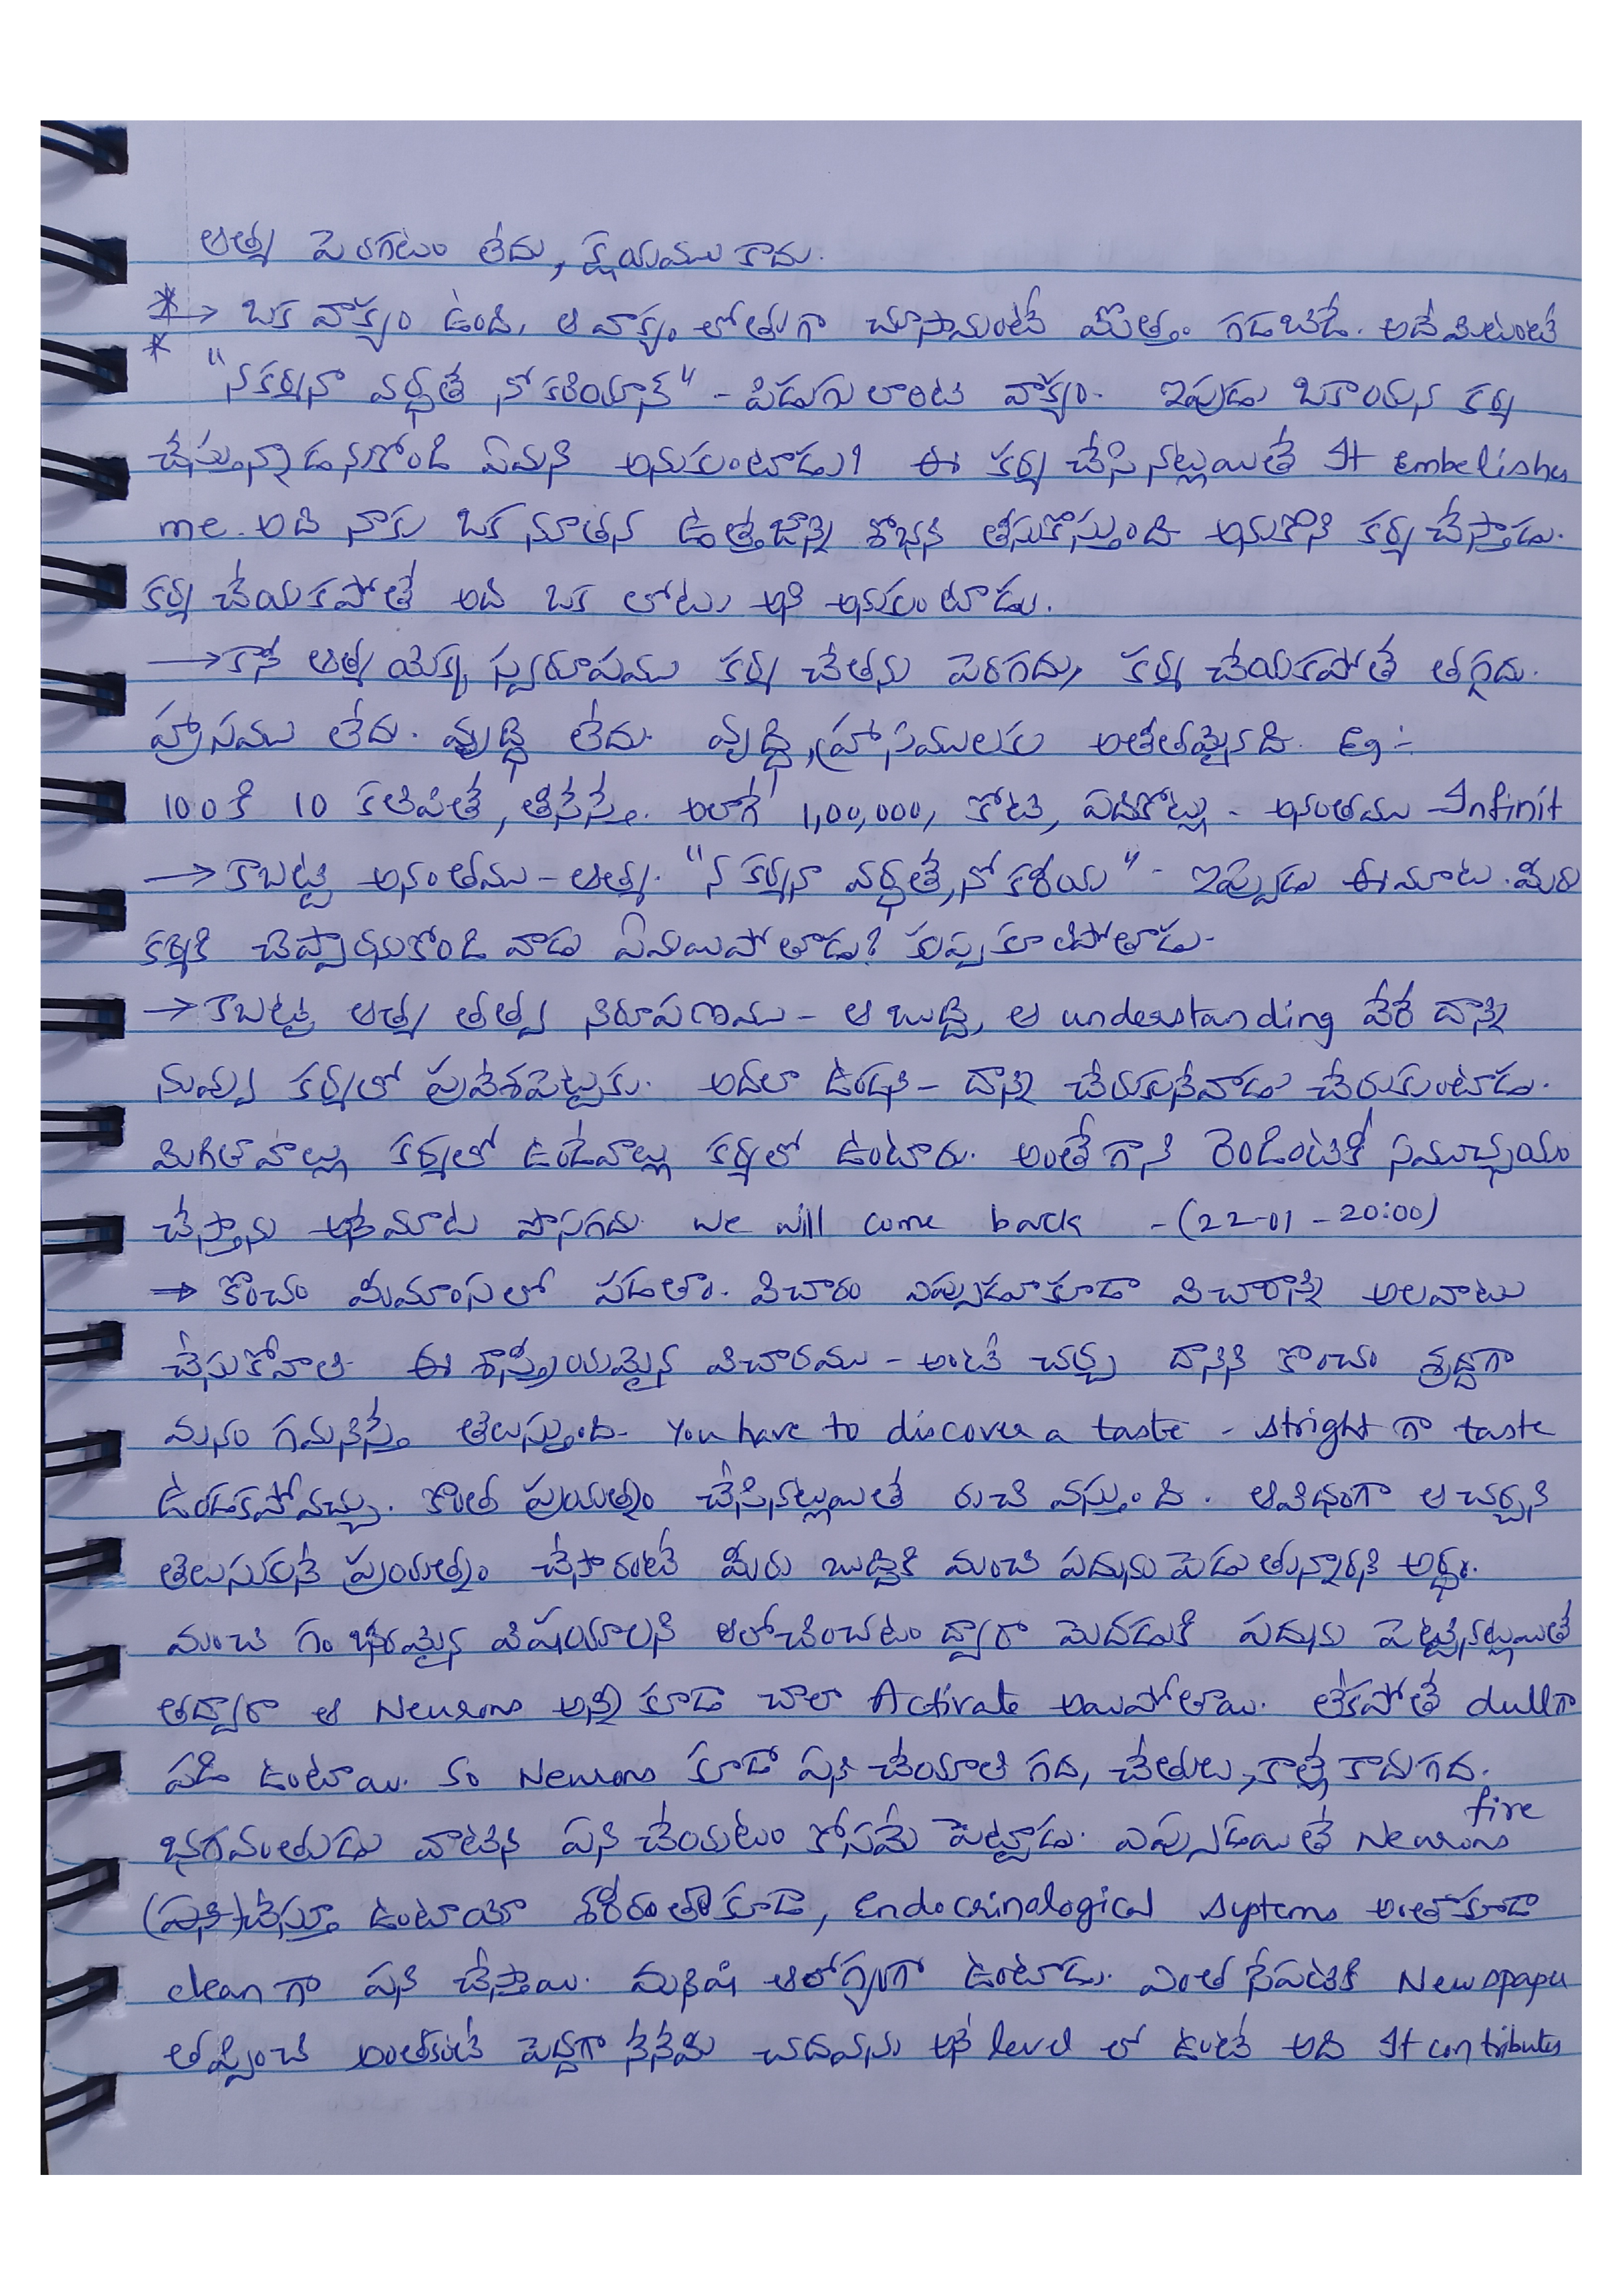 ఆత్మ పెరగటం లేదు, క్షయము కాదు.
* → ఒక వాక్యం ఉంది. ఆ వాక్యం లోతుగా చూసామంటే మొత్తం గడబిడే. అదేమిటంటే
* "నకర్మనా వర్ధతే నో కనీయాన్" - పిడుగు లాంటి వాక్యం. ఇపుడు ఒకాయన కర్మ
చేస్తున్నాడనుకోండి ఏమని అనుకుంటాడు? ఈ కర్మ చేసినట్లయితే It Embelishes
me. అది నాకు ఒక నూతన ఉత్తేజాన్ని శోభని తీసుకొస్తుంది అనుకొని కర్మ చేస్తాడు.
కర్మ చేయకపోతే అది ఒక లోటు అని అనుకుంటాడు.
→ కానీ ఆత్మ యొక్క స్వరూపము కర్మ చేతను పెరగదు, కర్మ చేయకపోతే తగ్గదు.
హ్రాసము లేదు. వృద్ధి లేదు. వృద్ధి, హ్రాసములకు అతీతమైనది. Eg :-
100 కి 10 కలిపితే, తీసేస్తే. అలాగే 1,00,000, కోటి, పదికోట్లు - అనంతము Infinit
→ కాబట్టి అనంతము - ఆత్మ. "న కర్మనా వర్ధతే, నో కనీయ" - ఇప్పుడు ఈ మాట. మీరు
కర్మకి చెప్పారనుకోండి వాడు ఏమయిపోతాడు? కుప్పకూలిపోతాడు.
→ కాబట్టి ఆత్మ తత్వ నిరూపణము - ఆ బుద్ధి, ఆ understanding వేరే దాన్ని
నువ్వు కర్మలో ప్రవేశపెట్టకు. అదలా ఉండని - దాన్ని చేరుకునేవాడు చేరుకుంటాడు.
మిగిలిన వాల్లు కర్మలో ఉండేవాల్లు కర్మలో ఉంటారు. అంతేగాని రెండింటికీ సముచ్చయం
చేస్తాను అనేమాట పొసగదు. we will come back - (22-01 - 20:00)
→ కొంచం మీమాంసలో పడతాం. విచారం ఎప్పుడూకూడా విచారాన్ని అలవాటు
చేసుకోవాలి. ఈ శాస్త్రీయమైన విచారము - అంటే చర్చ దానిని కొంచం శ్రద్ధగా
మనం గమనిస్తే తెలుస్తుంది. You have to discover a taste - stright గా taste
ఉండకపోవచ్చు. కొంత ప్రయత్నం చేసినట్లయితే రుచి వస్తుంది. ఆవిధంగా ఆ చర్చని
తెలుసుకునే ప్రయత్నం చేసారంటే మీరు బుద్ధికి మంచి పదును పెడుతున్నారని అర్థం.
మంచి గంభీరమైన విషయాలని ఆలోచించటం ద్వారా మెదడుకి పదును పెట్టినట్లయితే
తద్వారా ఆ Neurons అన్ని కూడా చాలా Activate అయిపోతాయి. లేకపోతే dull గా
పడి ఉంటాయి. so Neurons కూడా పని చేయాలి గద, చేతులు, కాల్లే కాదుగద.
fire
భగవంతుడు వాటిని పని చేయటం కోసమే పెట్టాడు. ఎప్పుడయితే Neurons
(పని) చేస్తూ ఉంటాయో శరీరంతాకూడా, Endocrinological systems అంతాకూడా
clean గా పని చేస్తాయి. మనిషి ఆరోగ్యంగా ఉంటాడు. ఎంత సేపటికి Newspaper
తప్పించి అంతకంటే పెద్దగా నేనేమి చదవను అనే level లో ఉంటే అది It contributes